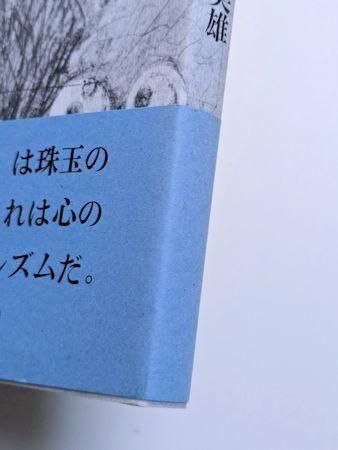 英雄
は珠玉の
れは心の
ズムだ。